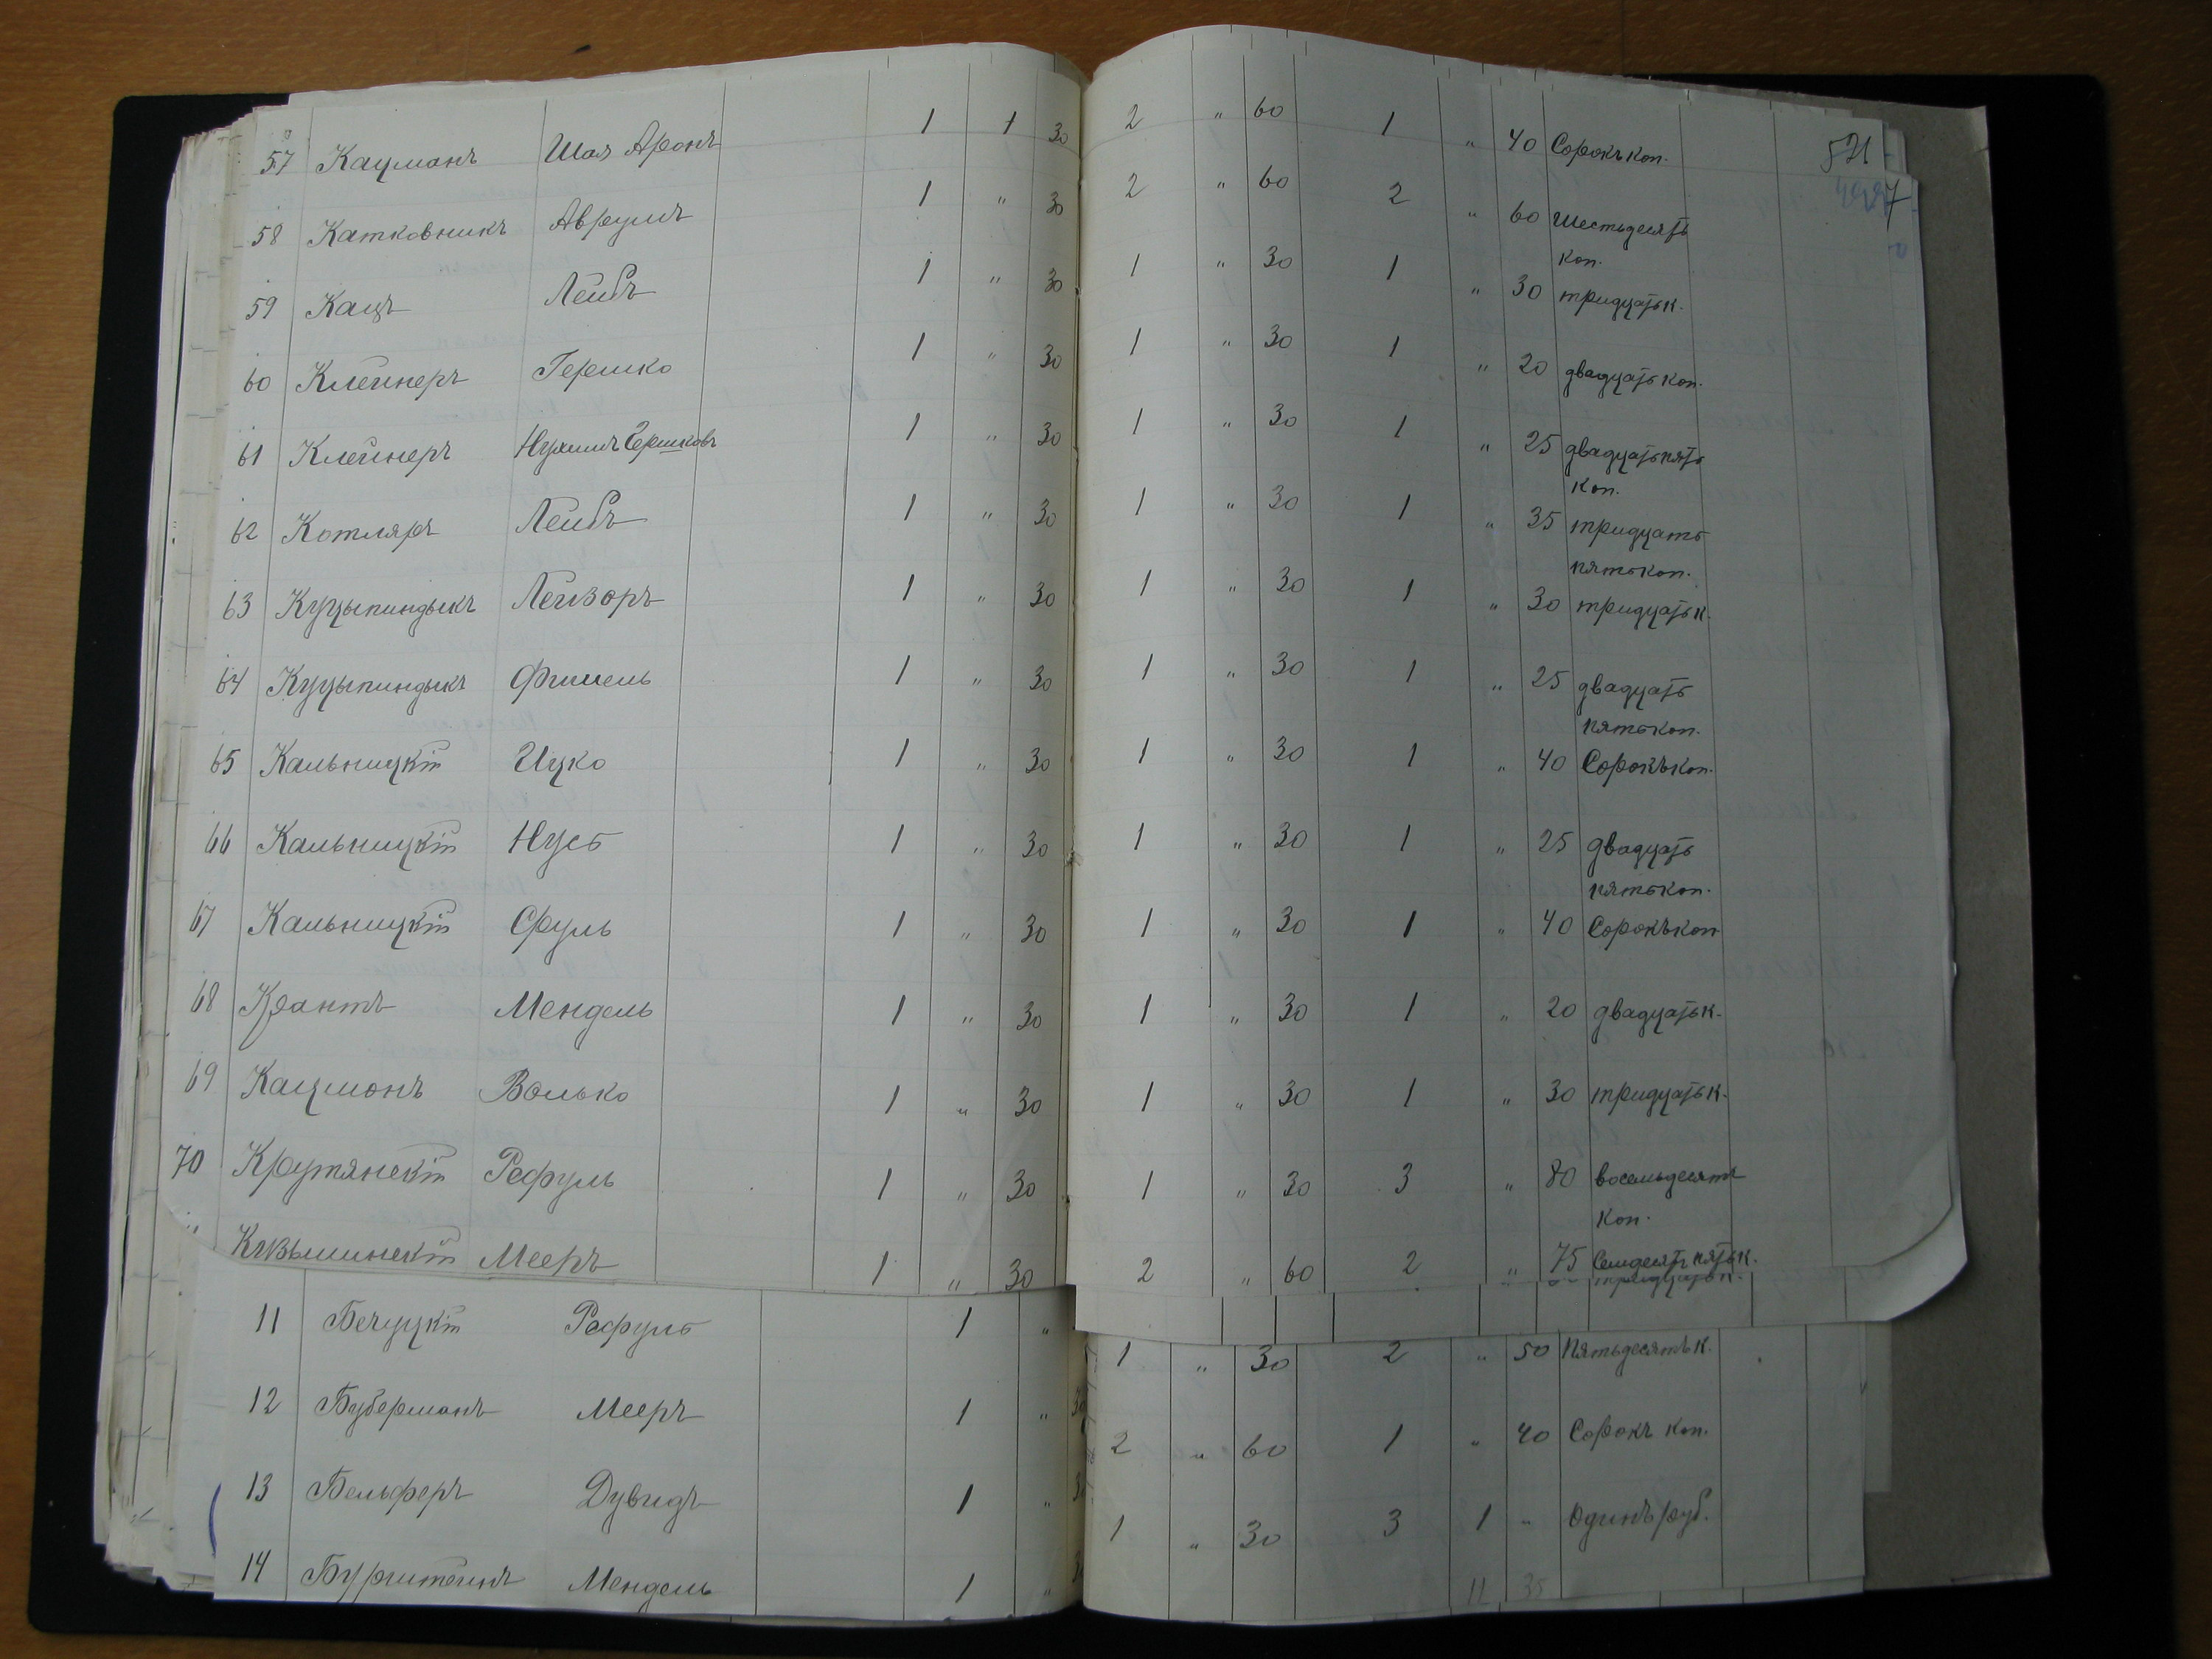 57 Кацманъ Шая Аронъ 1 1 30 2 " 60 1 " 40 Сорокъ коп. 521
58 Катковникъ Аврумъ 1 " 30 2 " 60 2 " 60 Шестьдесятъ
коп.
59 Кацъ Лейбъ 1 " 30 1 " 30 1 " 30 тридцать к.
60 Клейнеръ Гершко 1 " 30 1 " 30 1 " 20 двадцать коп.
61 Клейнеръ Нухимъ Гершковъ 1 " 30 1 " 30 1 " 25 двадцать пять
коп.
62 Котляръ Лейбъ 1 " 30 1 " 30 1 " 35 тридцать
пять коп.
63 Куцыпиндыкъ Лейзоръ 1 " 30 1 " 30 1 " 30 тридцать к.
64 Куцыпиндыкъ Фишель 1 " 30 1 " 30 1 " 25 двадцать
пять коп.
65 Кальницкій Ицко 1 " 30 1 " 30 1 " 40 Сорокъ коп.
66 Кальницкій Нусь 1 " 30 1 " 30 1 " 25 двадцать
пять коп.
67 Кальницкій Сруль 1 " 30 1 " 30 1 " 40 Сорокъ коп
68 Крантъ Мендель 1 " 30 1 " 30 1 " 20 двадцать к.
69 Кацманъ Волько 1 " 30 1 " 30 1 " 30 тридцать к.
70 Крутянскій Рафуль 1 " 30 1 " 30 3 " 80 восемьдесятъ
коп.
Мееръ 1 " 30 2 " 60 2 " 75 Семдесятъ пять к.
тридцать к.
11 Бечуцкій Рафуль 1 " 1 " 30 2 " 50 Пятьдесятъ к.
12 Буберманъ Мееръ 1 " 30 2 " 60 1 " 40 Сорокъ коп.
13 Бельферъ Дувидъ 1 " 1 " 30 3 1 " Одинъ руб.
14 Бурштейнъ Мендель 1 " 11 35